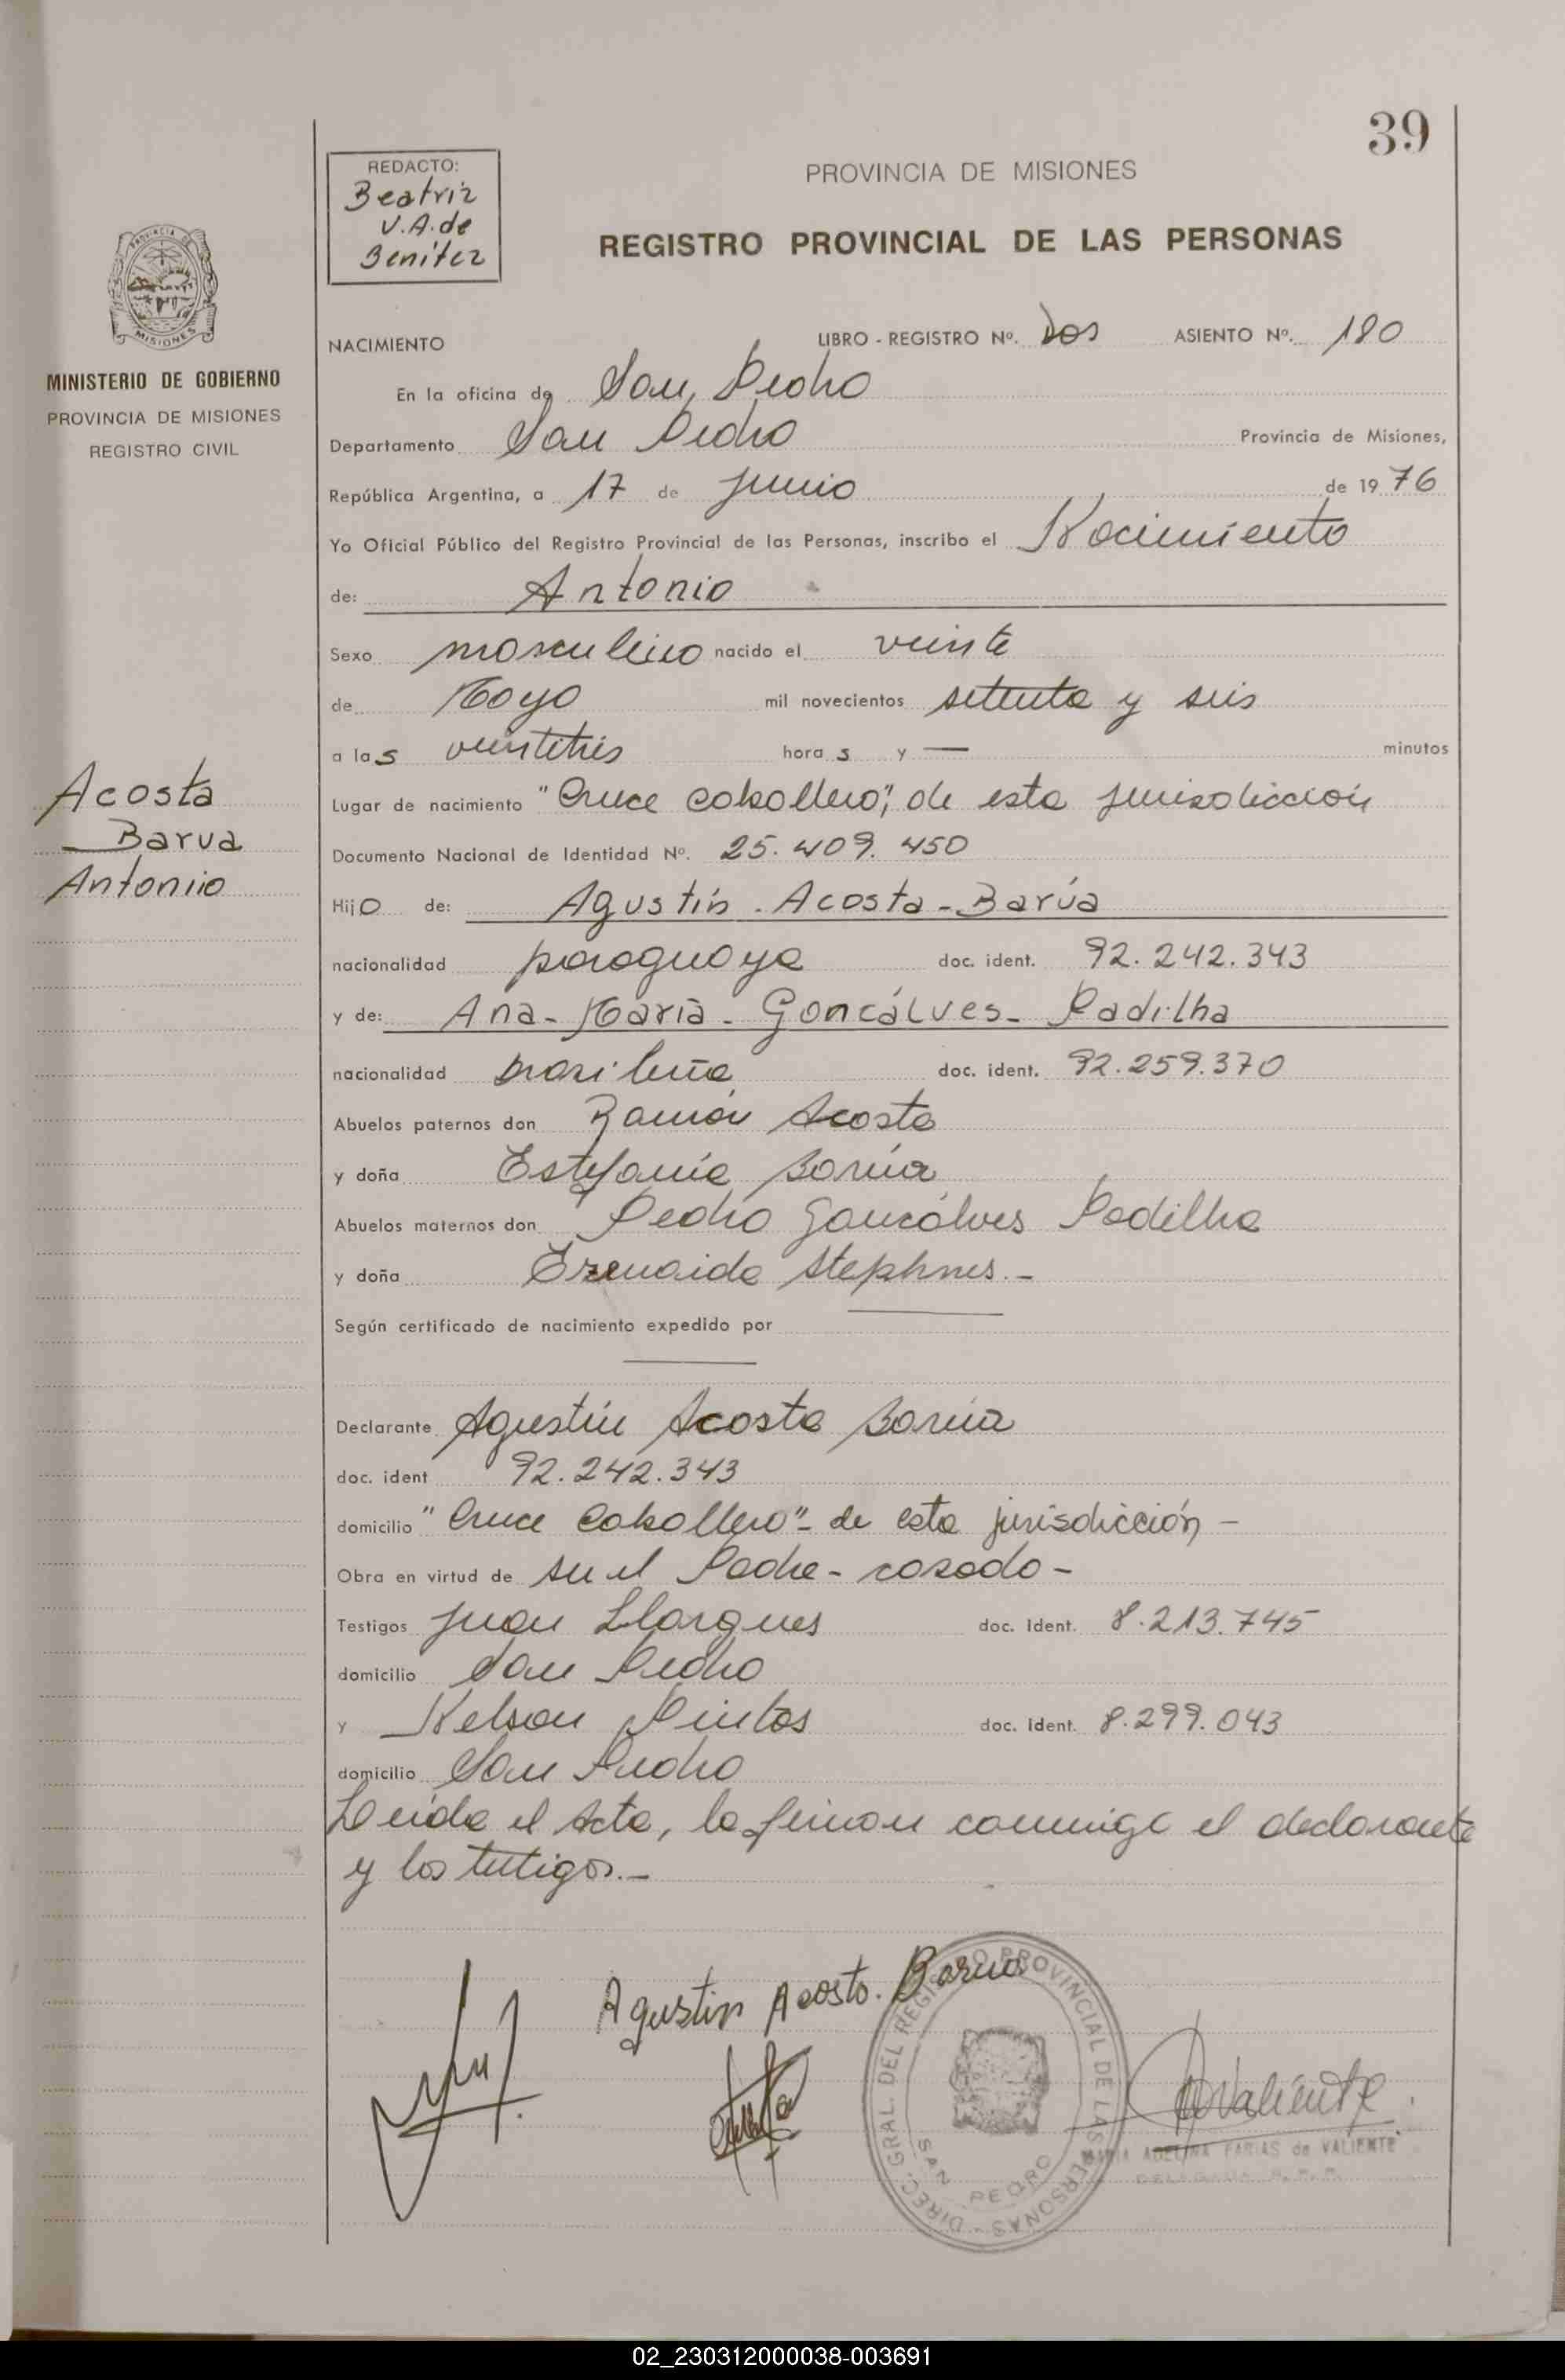 39
REDACTO:
Beatriz
V.A. de
Benítez
PROVINCIA DE MISIONES
REGISTRO PROVINCIAL DE LAS PERSONAS
PROVINCIA DE
MISIONES
MINISTERIO DE GOBIERNO
PROVINCIA DE MISIONES
REGISTRO CIVIL
NACIMIENTO LIBRO - REGISTRO Nº. Dos ASIENTO Nº. 180
En la oficina de San Pedro
Departamento San Pedro Provincia de Misiones,
República Argentina, a 17 de junio de 1976
Yo Oficial Público del Registro Provincial de las Personas, inscribo el Nacimiento
de: Antonio
Sexo masculino nacido el veinte
de Mayo mil novecientos setenta y seis
a las veintitrés horas y — minutos
Acosta
Barua
Antonio
Lugar de nacimiento "Cruce Caballero", de esta jurisdicción
Documento Nacional de Identidad Nº. 25.409.450
Hijo de: Agustín - Acosta - Barúa
nacionalidad paraguaya doc. ident. 92.242.343
y de: Ana - María - Goncálves - Padilha
nacionalidad brasileña doc. ident. 92.259.370
Abuelos paternos don Ramón Acosta
y doña Estefanía Barúa
Abuelos maternos don Pedro Goncálves Padilha
y doña Erenaida Stephnes.-
Según certificado de nacimiento expedido por —
—
Declarante Agustín Acosta Barúa
doc. ident 92.242.343
domicilio "Cruce Caballero"- de esta jurisdicción -
Obra en virtud de ser el Padre - casado -
Testigos Juan Llargues doc. Ident. 8.213.745
domicilio San Pedro
y Nelson Pintos doc. Ident. 8.299.043
domicilio San Pedro
Leída el Acta, la firman conmigo el declarante
y los testigos.-
Agustin Acosto. Barua
DIREC. GRAL. DEL REGISTRO PROVINCIAL DE LAS PERSONAS -
SAN PEDRO
AValiente
MARIA ADELINA FARIAS de VALIENTE
DELEGADA R. P. P.
02_230312000038-003691